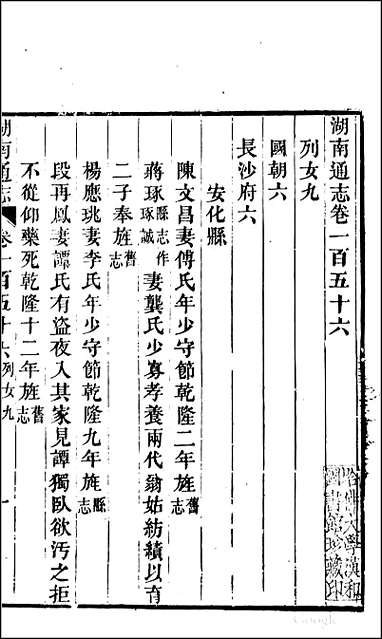 湖南通志卷一百五十六
列女九
國朝六
長沙府六
安化縣
陳文昌妻傅氏年少守節乾隆二年旌舊志
蔣琢縣志作琢誠妻龔氏少寡孝養兩代翁姑紡績以育
二子奉旌舊志
楊應珧妻李氏年少守節乾隆九年旌縣志
段再鳳妻譚氏有盜夜入其家見譚獨臥欲汚之拒
不從仰藥死乾隆十二年旌舊志
湖南通志 卷一百五十六 列女九 一
哈佛大學漢和圖書館珍藏印
Google